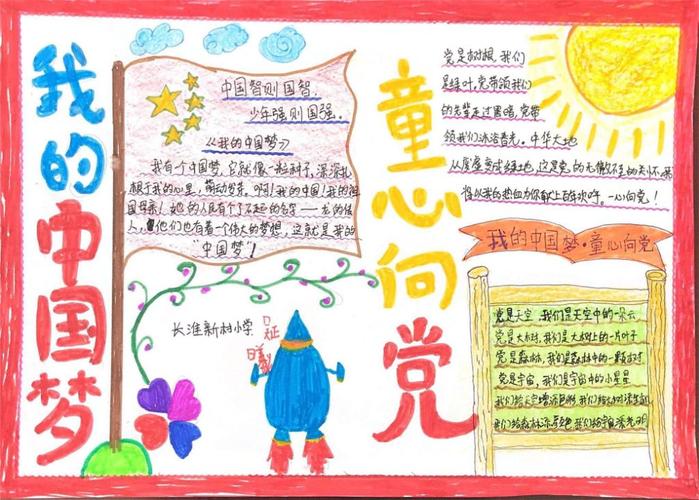 我的中国梦
中国智则国智，
少年强则国强。
《我的中国梦》
我有个中国梦，它就像一粒种子，深深扎
根于我的心里，萌动发芽。啊！我的中国！我的祖
国母亲！她的人民有个了不起的名字——龙的传
人，他们也有着一个伟大的梦想，这就是我的
“中国梦”！
长淮新村小学
童心向党
党是树根，我们
是绿叶，党带领我们
的先辈走过黑暗，党带
领我们沐浴春光。中华大地
从废墟变成绿地，这是党的无微不至的关怀
一心向党！
我的中国梦·童心向党
党是天空，我们是天空中的一朵云
党是大树，我们是大树上的一片叶子
党是森林，我们是森林中的一颗树
党是宇宙，我们是宇宙中的小星星
我们给天空增添色彩
我们给宇宙添光明